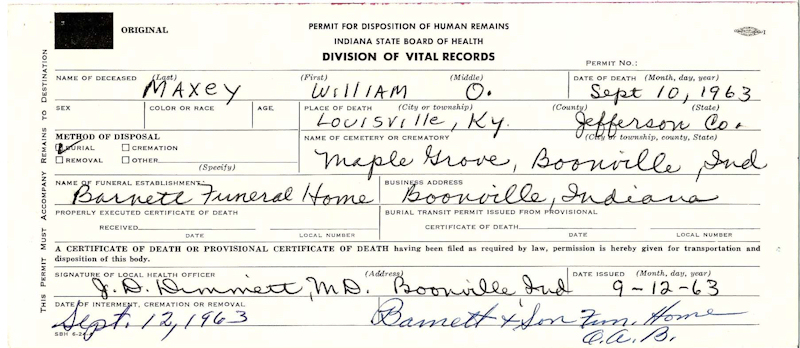 ORIGINAL
PERMIT FOR DISPOSITION OF HUMAN REMAINS
INDIANA STATE BOARD OF HEALTH
DIVISION OF VITAL RECORDS
PERMIT NO.:
THIS PERMIT MUST ACCOMPANY REMAINS TO DESTINATION
NAME OF DECEASED (Last) (First) (Middle) DATE OF DEATH (Month, day, year)
MAXEY WILLIAM O. Sept 10, 1963
SEX COLOR OR RACE AGE PLACE OF DEATH (City or township) (County) (State)
Louisville, Ky. Jefferson Co.
METHOD OF DISPOSAL NAME OF CEMETERY OR CREMATORY (City or township, county, State)
BURIAL CREMATION
REMOVAL OTHER
(Specify)
Maple Grove, Boonville, Ind
NAME OF FUNERAL ESTABLISHMENT: BUSINESS ADDRESS
Barnett Funeral Home Boonville, Indiana
PROPERLY EXECUTED CERTIFICATE OF DEATH BURIAL TRANSIT PERMIT ISSUED FROM PROVISIONAL
RECEIVED CERTIFICATE OF DEATH.
DATE LOCAL NUMBER DATE LOCAL NUMBER
A CERTIFICATE OF DEATH OR PROVISIONAL CERTIFICATE OF DEATH having been filed as required by law, permission is hereby given for transportation and
disposition of this body.
SIGNATURE OF LOCAL HEALTH OFFICER (Address) DATE ISSUED (Month, day, year)
J. D. Dimmett, M.D. Boonville, Ind 9-12-63
DATE OF INTERMENT, CREMATION OR REMOVAL
Sept. 12, 1963 Barnett & Son Fun. Home
C.A.B.